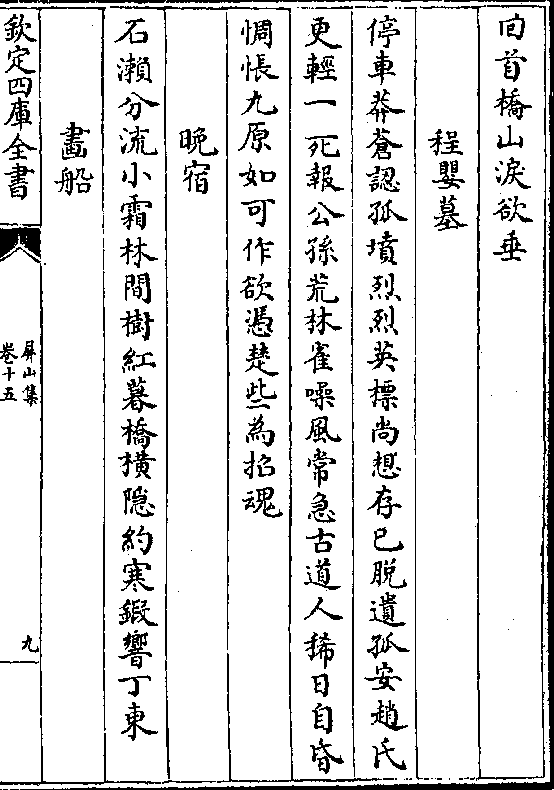 回首橋山淚欲垂
程嬰墓
停車莽蒼認孤墳烈烈英標尚想存已脱遺孤安趙氏
更輕一死報公孫荒林雀噪風常急古道人稀日自昏
惆悵九原如可作欲憑楚些為招魂
晚宿
石瀨分流小霜林間樹紅暮橋橫隠約寒鍛響丁東
畵船
欽定四庫全書
屏山集
卷十五
九